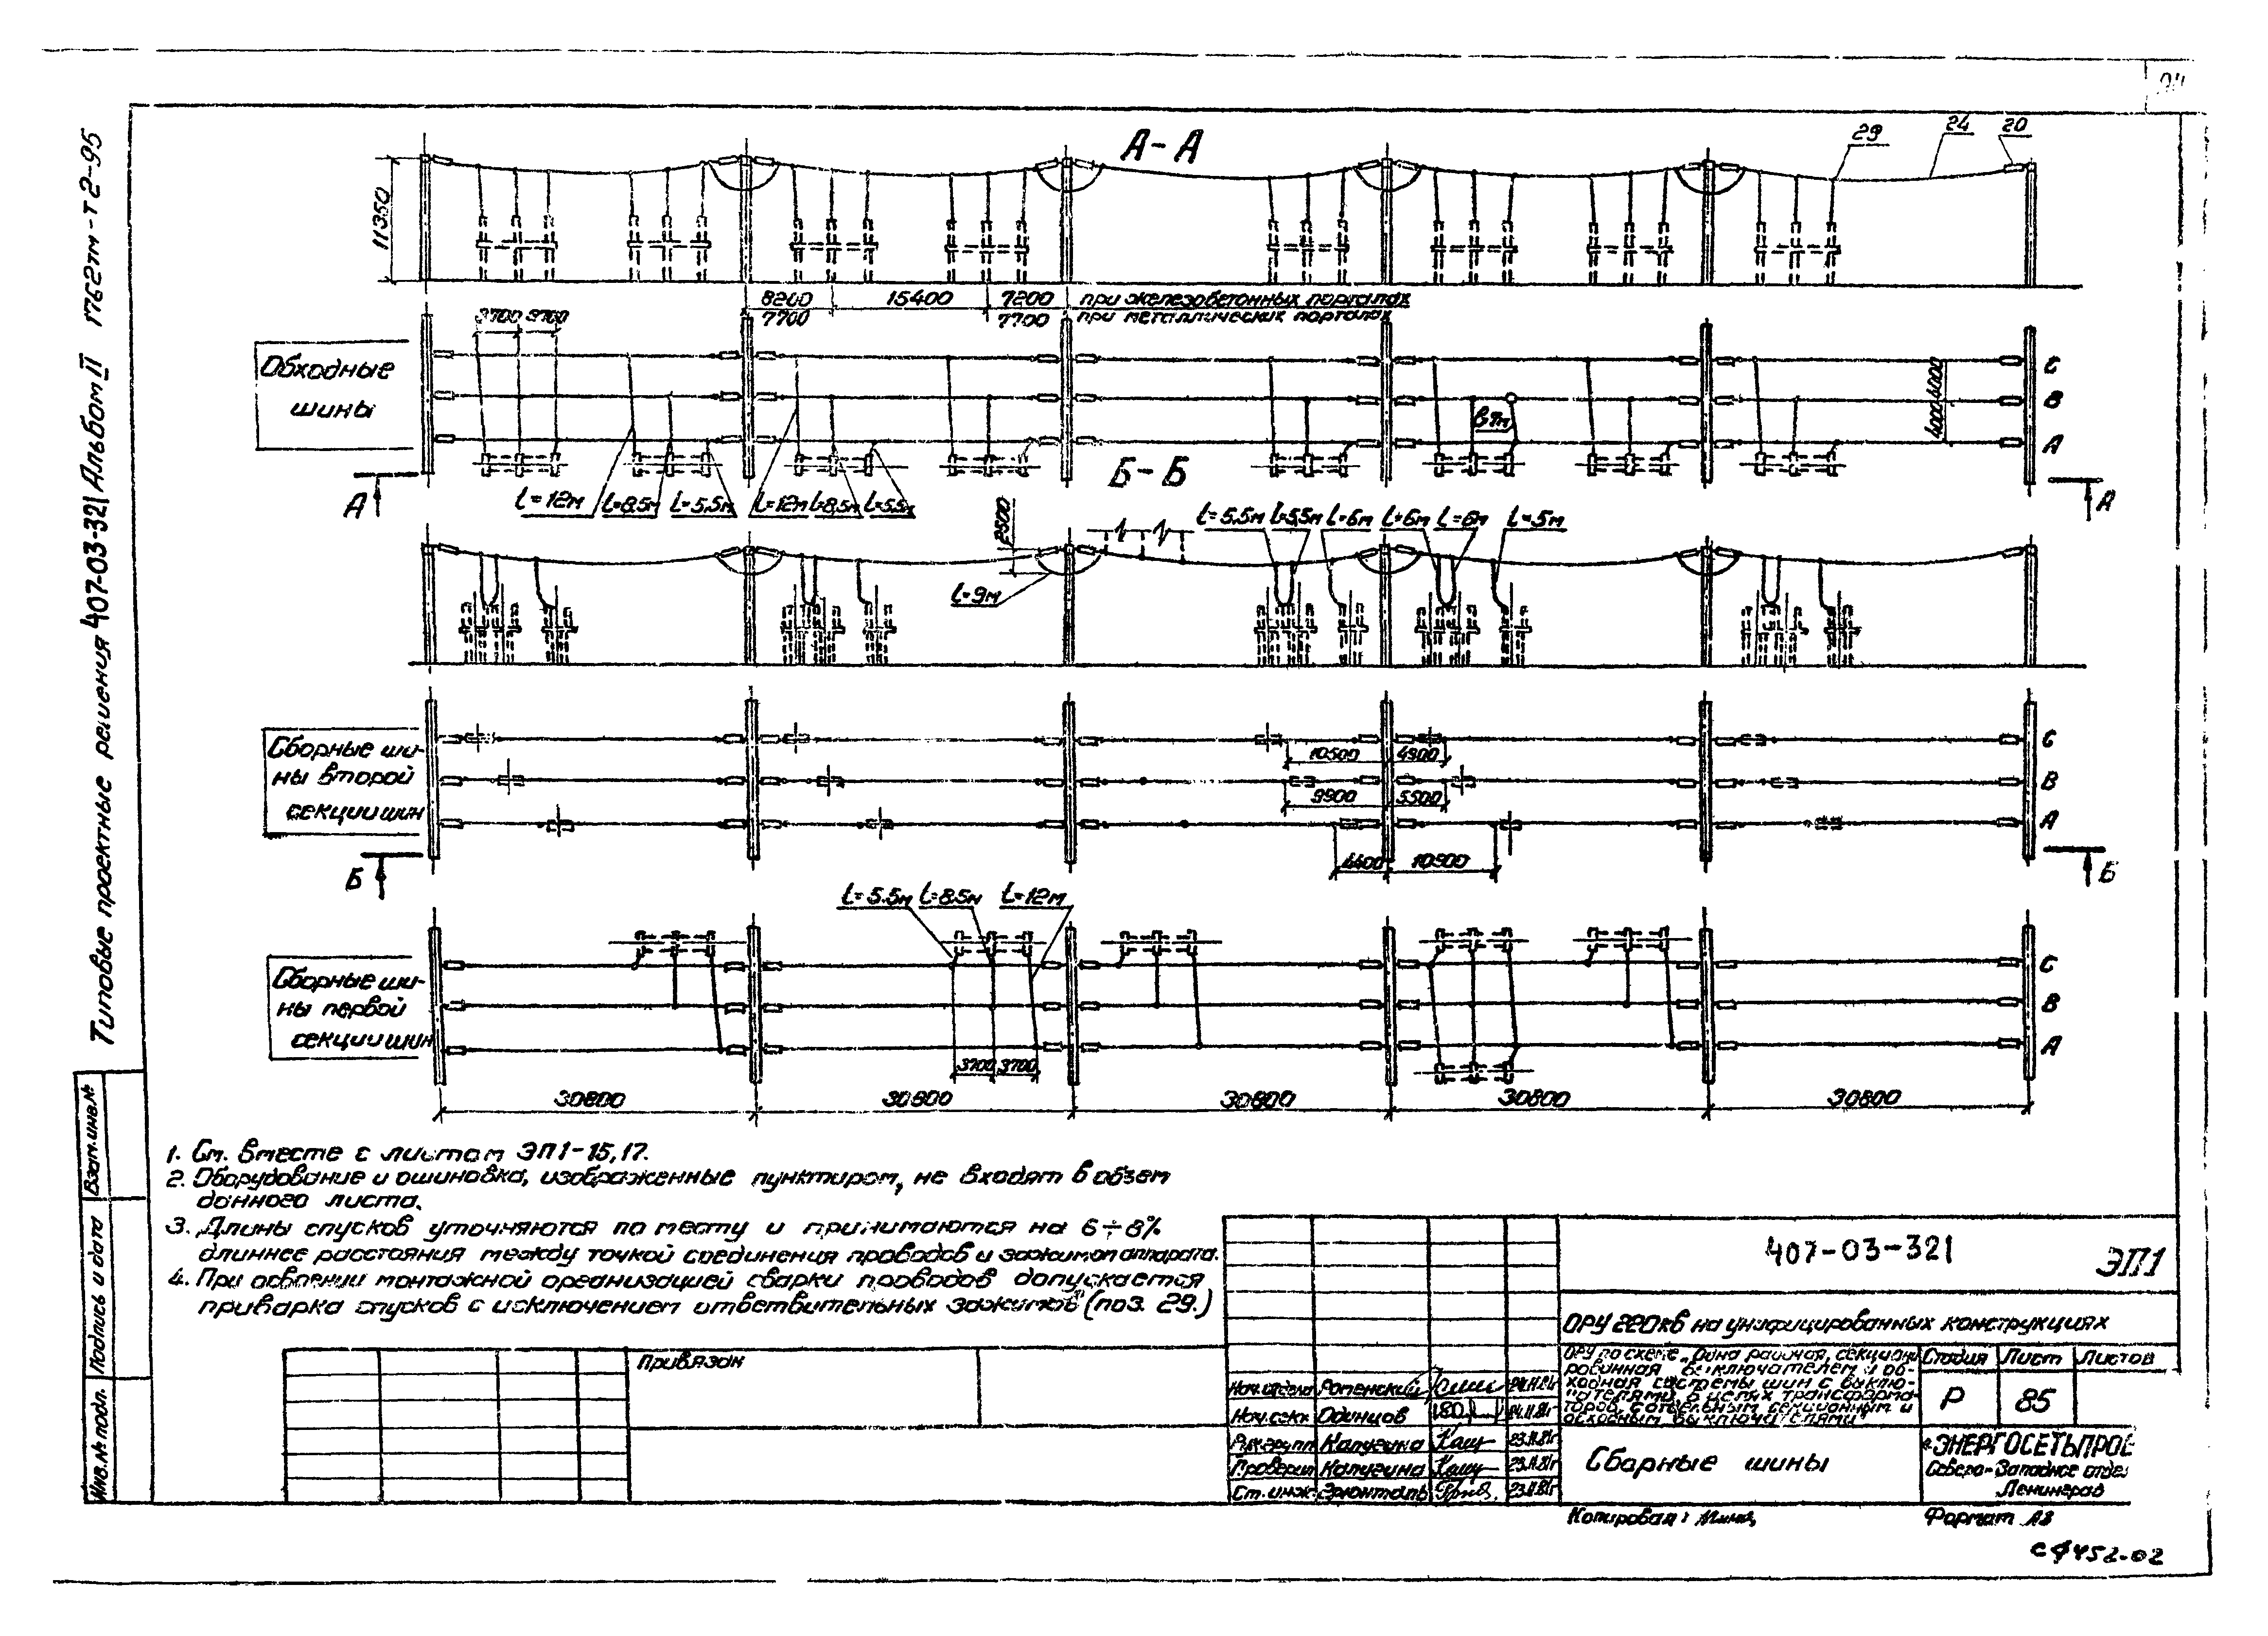 А-А
29
24
20
11350
8200
15400
7200
при железобетонных порталах
7700
7700
при металлических порталах
3700
3700
Обходные
шины
С
В
А
4000
4000
l=12м
l=8,5м
l=5,5м
l=12м
l=8,5м
l=5,5м
А
А
Б-Б
2500
l=9м
l=5,5м
l=5,5м
l=6м
l=6м
l=6м
l=5м
Сборные ши-
ны второй
секции шин
10500
4900
9900
5500
4400
10900
С
В
А
Б
Б
l=5.5м
l=8,5м
l=12м
Сборные ши-
ны первой
секции шин
3700
3700
С
В
А
30800
30800
30800
30800
30800
1. См. вместе с листам ЭП1-15,17.
2. Оборудование и ошиновка, изображенные пунктиром, не входят в объем
данного листа.
3. Длины спусков уточняются по месту и принимаются на 6÷8%
длиннее расстояния между точкой соединения проводов и зажимом аппарата.
4. При освоении монтажной организацией сварки проводов допускается
приварка спусков с исключением ответвительных зажимов (поз. 29.)
Типовые проектные решения 407-03-321 Альбом II
Взам.инв.№
Подпись и дата
Инв.№ подл.
Привязан
407-03-321
ЭП1
ОРУ 220кв на унифицированных конструкциях
ОРУ по схеме „Одна рабочая, секциони-
рованная выключателем и об-
ходная системы шин с выклю-
чателями в цепях трансформа-
торов, с отдельным секционным и
обходным выключателями"
Стадия
Лист
Листов
Р
85
Нач.отдела Роменский
Нач.секк Одинцов
Рук.групп Калугина
Проверил Калугина
23.11.81г
Ст. инж.
23.11.81г
Сборные шины
«ЭНЕРГОСЕТЬПРОЕ
Северо-Западное отде
Ленинград
Копировал:
Формат А3